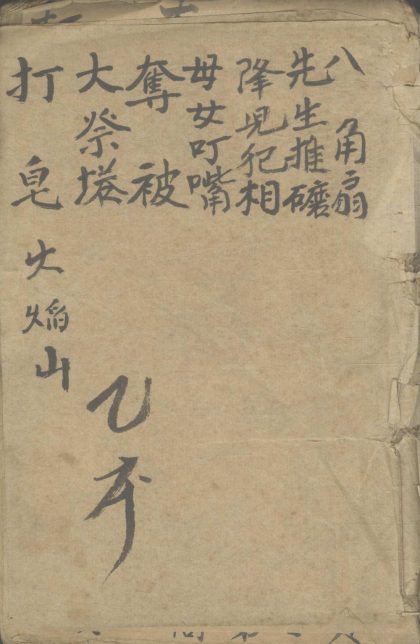 八角扇
先生推磨
降児犯相
母女叮嘴
奪被
大祭塔
打皂 火焰山
乙本